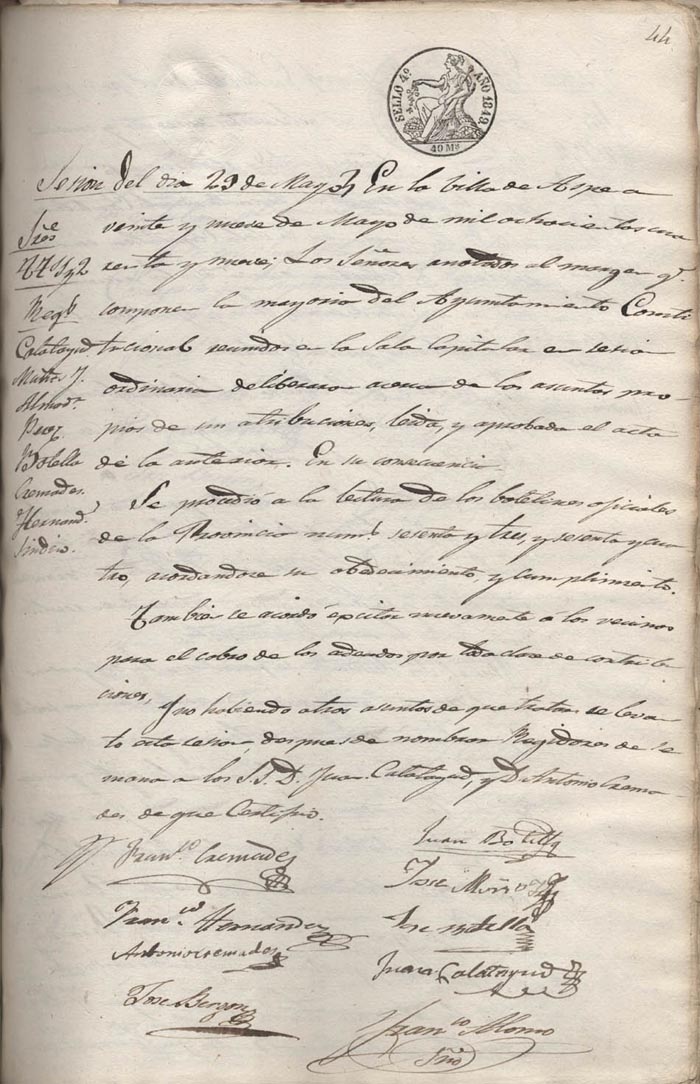 44
SELLO 4º AÑO 1849.
40 Ms
Sesion del dia 29 de Mayo En la Villa de Aspe a
Sres veinte y nueve de Mayo de mil ochocientos cua
renta y nueve; Los Señores anotados al margen q.
Regs componen la mayoria del Ayuntamiento Consti
Calatayud tucional reunidos en la Sala Capitular en sesion
ordinaria deliberaron acerca de los asuntos pro-
Almodr
Perez pios de sus atribuciones, leida, y aprobada el acta
Botella de la anterior. En su consecuencia
Cremades. Se procedió a la lectura de los boletines oficiales
Hernandz de la Provincia nums sesenta y tres, y sesenta y cua
Sindico. tro, acordandose su obedecimiento, y cumplimiento.
Tambien se acordó excitar nuevamente a los vecinos
para el cobro de los adeudos por toda clase de contribu
ciones, Y no habiendo otros asuntos de que tratar se levan
to esta sesion, despues de nombrar Regidores de se
mana a los S.S. D. Juan Calatayud, y D Antonio Crema-
des de que Certifico.
Franco. Cremades
Juan Botella
Jose
Franco. Hernandez
Jse Botella
Antonio cremades
Juan Calatayud
Jose
Franco Alonso
Srio